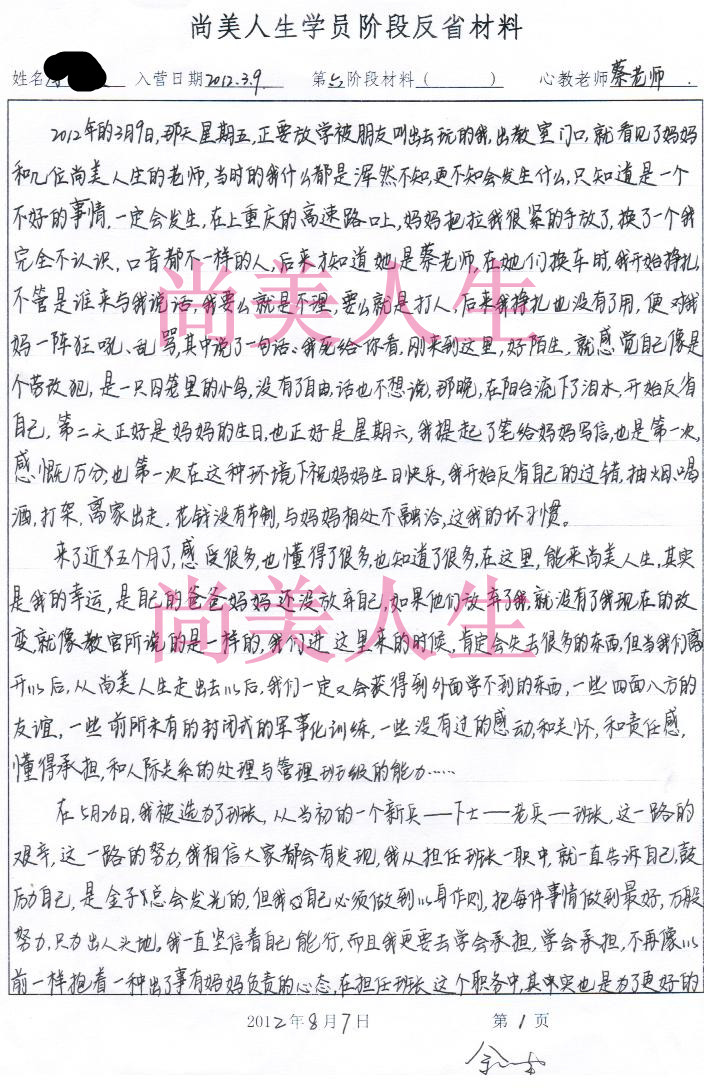 尚美人生学员阶段反省材料
姓名 入营日期2012.3.9 第六阶段材料( ) 心教老师蔡老师.
2012年的3月9日,那天星期五,正要放学被朋友叫出去玩的我,出教室门口,就看见了妈妈
和几位尚美人生的老师,当时的我什么都是浑然不知,更不知会发生什么,只知道是一个
不好的事情,一定会发生,在上重庆的高速路口上,妈妈把拉我很紧的手放了,换了一个我
完全不认识,口音都不一样的人,后来才知道她是蔡老师,在她们换车时,我开始挣扎,
不管是谁来与我说话,我要么就是不理,要么就是打人,后来我挣扎也没有了用,便对我
妈一阵狂吼、乱骂,其中说了一句话、我死给你看,刚来到这里,好陌生,就感觉自己像是
个劳改犯,是一只囚笼里的小鸟,没有了自由,话也不想说,那晚,在阳台流下了泪水,开始反省
自己,第二天正好是妈妈的生日,也正好是星期六,我提起了笔给妈妈写信,也是第一次,
感慨万分,也第一次在这种环境下祝妈妈生日快乐,我开始反省自己的过错,抽烟、喝
酒,打架,离家出走,花钱没有节制,与妈妈相处不融洽,这我的坏习惯。
来了近五个月了,感受很多,也懂得了很多,也知道了很多,在这里,能来尚美人生,其实
是我的幸运,是自己的爸爸妈妈还没放弃自己,如果他们放弃了我,就没有了我现在的改
变,就像教官所说的是一样的,我们进这里来的时候,肯定会失去很多的东西,但当我们离
开以后,从尚美人生走出去以后,我们一定又会获得到外面学不到的东西,一些四面八方的
友谊,一些前所未有的封闭式的军事化训练,一些没有过的感动,和关怀,和责任感,
懂得承担,和人际关系的处理与管理班级的能力……
在5月26日,我被选为了班长,从当初的一个新兵——下士——老兵—班长,这一路的
艰辛,这一路的努力,我相信大家都会有发现,我从担任班长一职中,就一直告诉自己,鼓
励自己,是金子总会发光的,但我自己必须做到以身作则,把每件事情做到最好,万般
努力,只为出人头地,我一直坚信着自己能行,而且我更要去学会承担,学会承担,不再像以
前一样抱着一种出了事有妈妈负责的心态,在担任班长这个职务中,其中实也是为了更好的
2012年8月7日 第1页
尚美人生
尚美人生